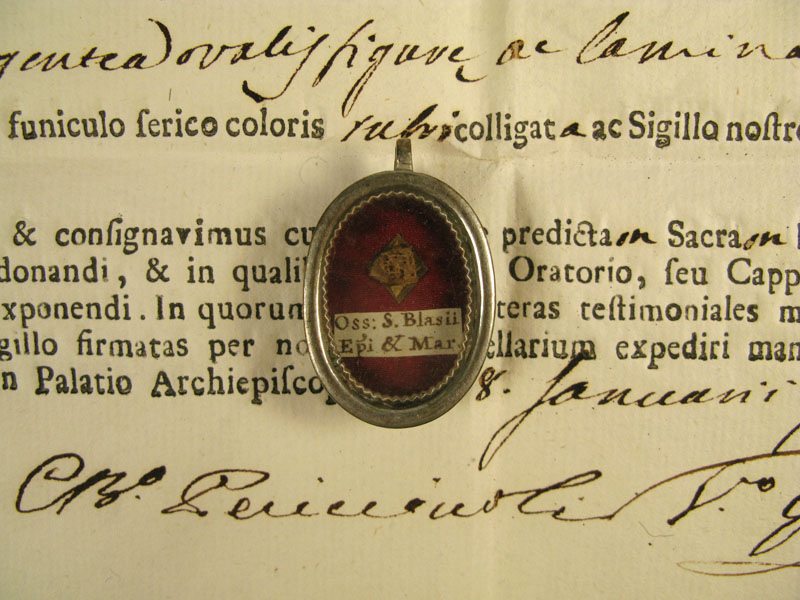 argentea ovalis figuræ ac lamina
funiculo ſerico coloris rubri colligata ac Sigillo noſtro
& conſignavimus cu predictam Sacram
donandi, & in quali Oratorio, ſeu Capp
xponendi. In quorum teras teſtimoniales m
gillo firmatas per no ellarium expediri man
n Palatio Archiepiſcop 8. Januarii
Oss: S. Blasii
Epi & Mar.